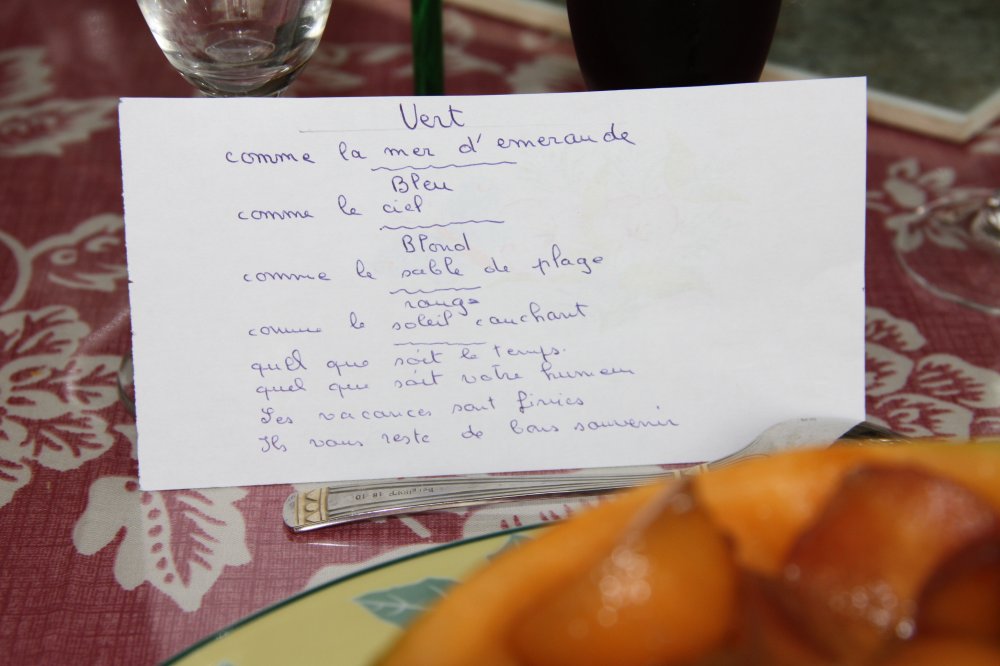 Vert
comme la mer d'emeraude
Bleu
comme le ciel
Blond
comme le sable de plage
rouge
comme le soleil couchant
quel que soit le temps.
quel que soit votre humeur
Les vacances sont finies
Ils vous reste de bons souvenir
18-10